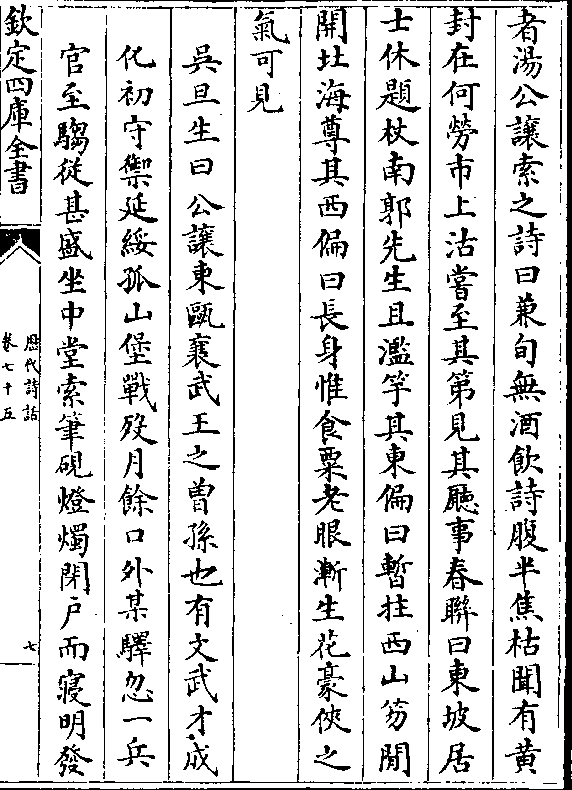 者湯公讓索之詩曰兼旬無酒飲詩腹半焦枯聞有黄
封在何勞市上沽嘗至其第見其廳事春聯曰東坡居
士休題杖南郭先生且濫竽其東偏曰暫拄西山笏閒
開北海尊其西偏曰長身惟食粟老眼漸生花豪俠之
氣可見
吳旦生曰公讓東甌襄武王之曽孫也有文武才成
化初守禦延綏孤山堡戰歿月餘口外某驛忽一兵
官至騶從甚盛坐中堂索筆硯燈燭閉户而寢明發
欽定四庫全書
歷代詩話
卷七十五
七